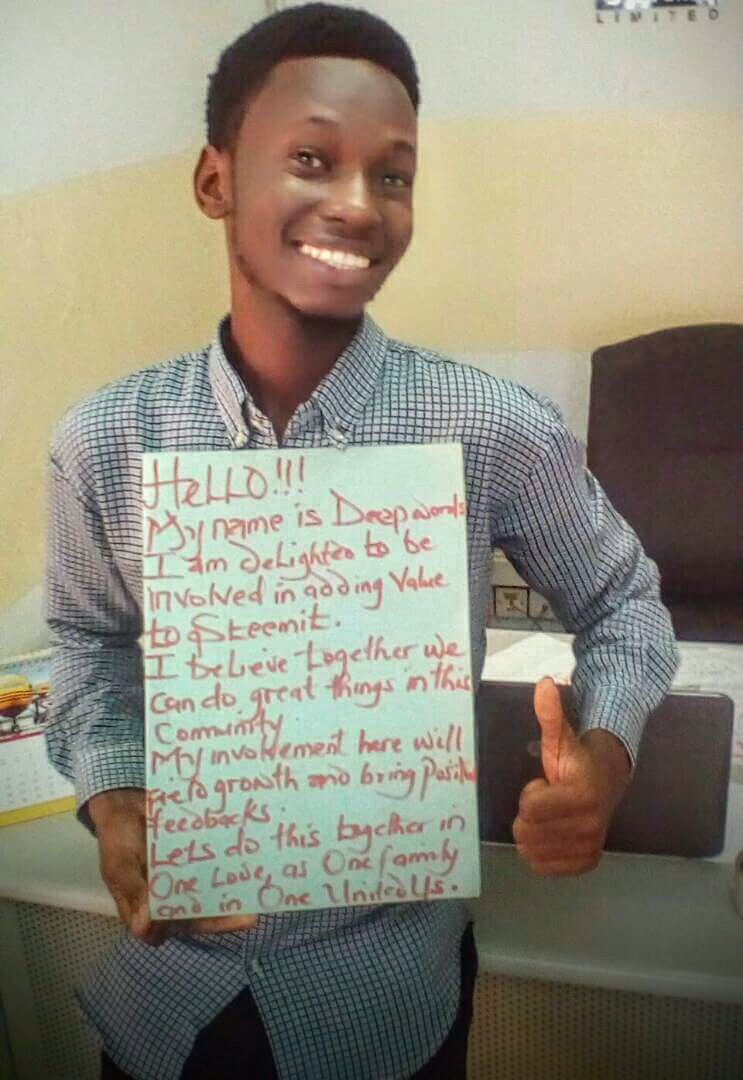 LIMITED
HeLLO!!!
My name is Deepwords
I am delighted to be
involved in adding Value
to Steemit.
I believe together we
can do great things in this
Community.
My involvement here will
field growth and bring Positive
feedbacks.
Lets do this together in
One Love, as One family
and in One United Us.